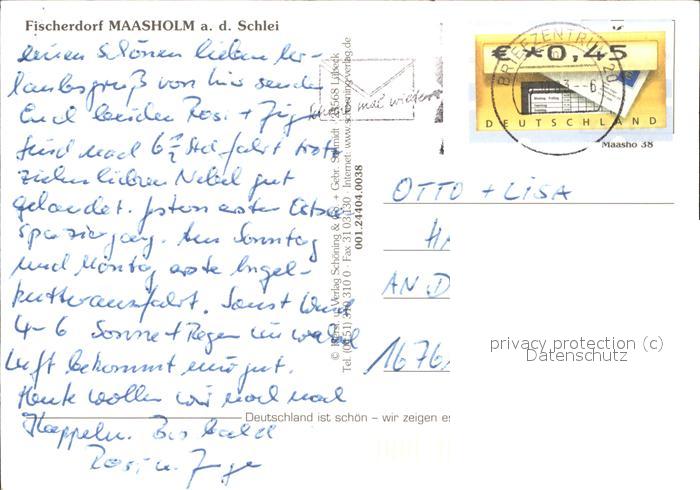 Fischerdorf MAASHOLM a. d. Schlei
einen schönen lieben Ur-
laubsgruß von hier senden
Euch beiden Rosi +
Sind nach 6½ Std. Fahrt trotz
lieben Nebel gut
gelandet. ersten Ostsee
spaziergang. Am Sonntag
und Montag erste Angel-
kutterausfahrt. Sonst Wind
4-6 Sonne + Regen im
Luft bekommt uns gut.
Heute wollen wir noch nach
Kappeln. Bis bald
Rosi u.
© Verlag Schöning & Co. + Gebr. Schmidt · 23568 Lübeck
Tel. (0451) 310 310 0 · Fax 31 03 130 · Internet: www.schoening-verlag.de
001.24404.0038
Deutschland ist schön – wir zeigen es
mal wieder
BRIEFZENTRUM 20
€ *0,45
DEUTSCHLAND
Maasho 38
OTTO + LISA
AN D
1676
privacy protection (c)
Datenschutz